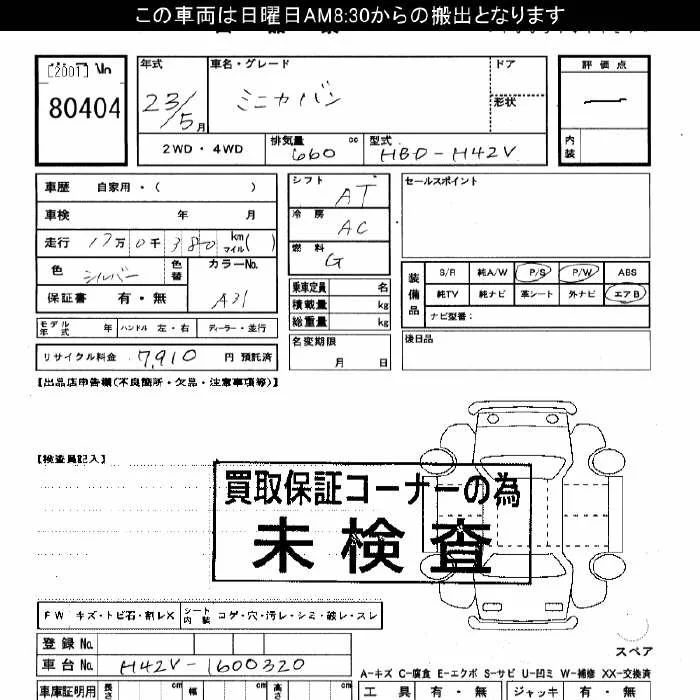 この車両は日曜日AM8:30からの搬出となります
[2001] No
80404
年式 23/5月
車名・グレード ミニカバン
ドア
形状
評価点 —
内装
2WD・4WD
排気量 660 cc
型式 HBD-H42V
車歴 自家用・( )
車検 年 月
走行 17万0千380 km マイル( )
色 シルバー 色替
カラーNo. A31
保証書 有・無
シフト AT
冷房 AC
燃料 G
乗車定員 名
積載量 kg
総重量 kg
名変期限 月 日
セールスポイント
装備品
S/R 純A/W P/S P/W ABS
純TV 純ナビ 革シート 外ナビ エアB
ナビ型番:
後日品
モデル年式 年 ハンドル 左・右 ディーラー・並行
リサイクル料金 7,910 円 預託済
【出品店申告欄(不良箇所・欠品・注意事項等)】
【検査員記入】
買取保証コーナーの為
未検査
FW キズ・トビ石・割レX シート内装 コゲ・穴・汚レ・シミ・破レ・スレ
登録No.
車台No. H42V-1600320
スペア
A-キズ C-腐食 E-エクボ S-サビ U-凹ミ W-補修 XX-交換済
車庫証明用 長さ cm 幅 cm 高さ cm
工具 有・無 ジャッキ 有・無